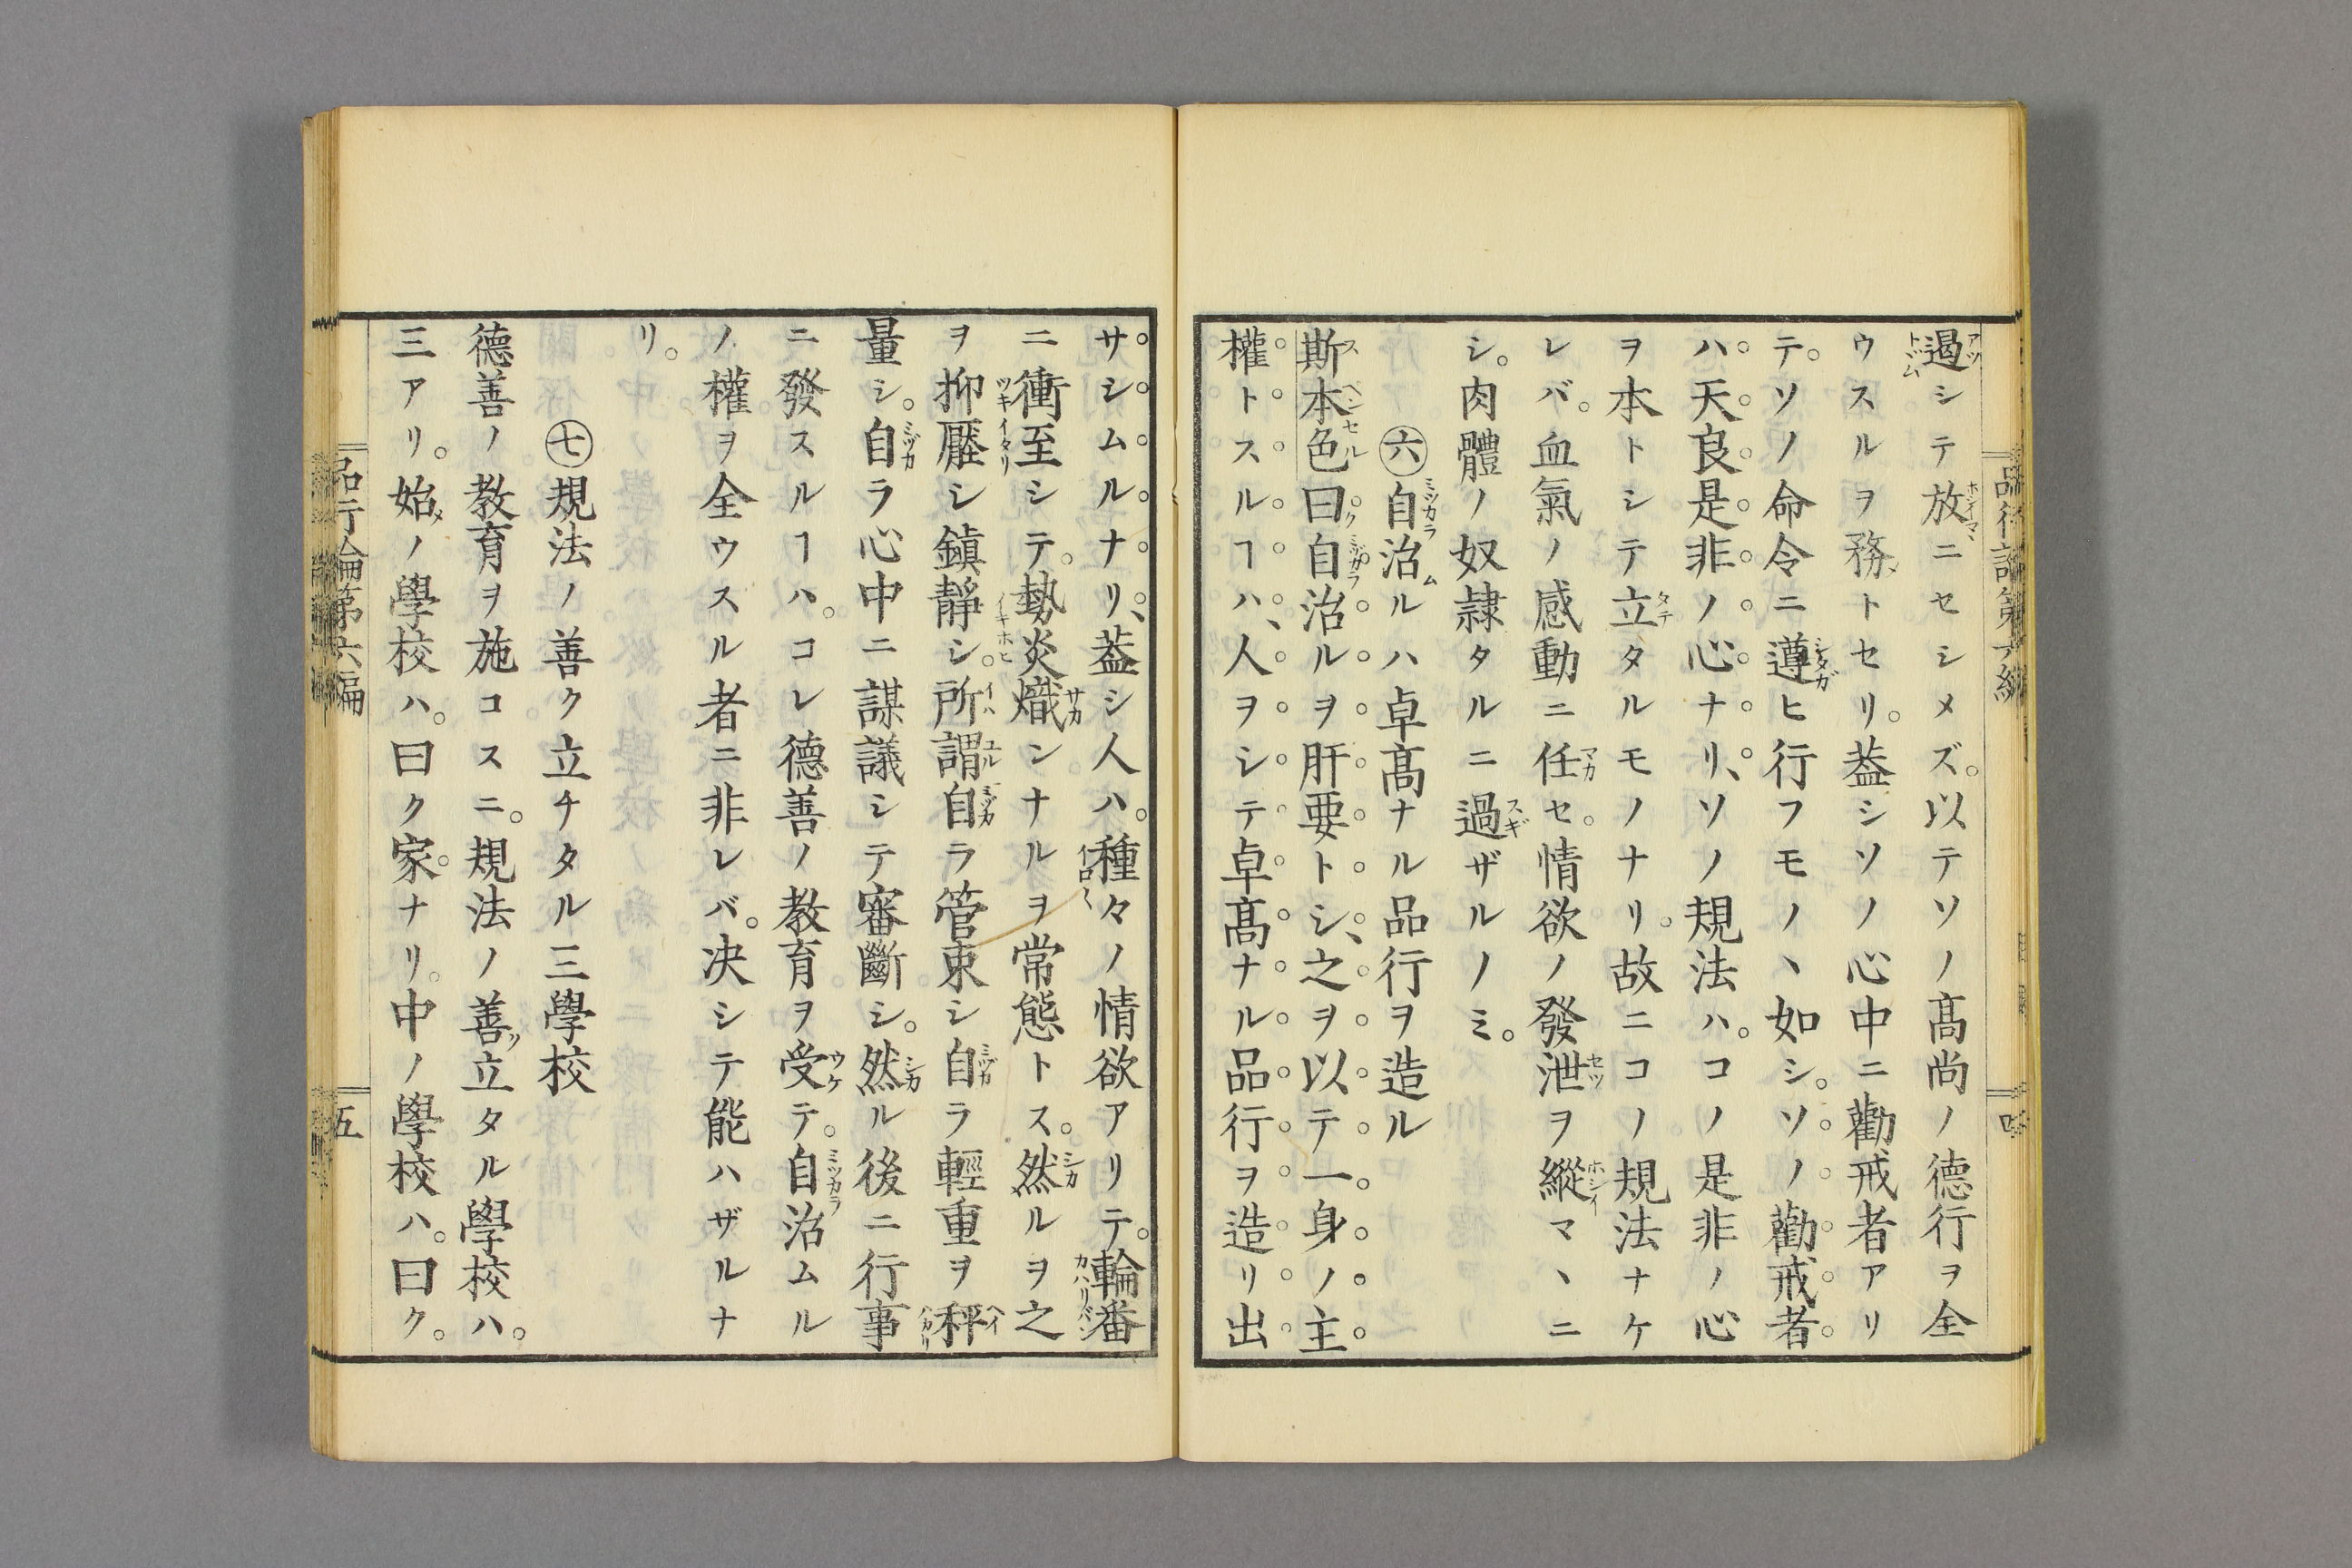 遏シテ放ニセシメズ。以テソノ髙尚ノ德行ヲ全
ウスルヲ務トセリ。葢シソノ心中ニ勸戒者アリ
テ。ソノ命令ニ遵ヒ行フモノヽ如シ。ソノ勸戒者
ハ天良是非ノ心ナリ、ソノ規法ハ。コノ是非ノ心
ヲ本トシテ立タルモノナリ。故ニコノ規法ナケ
レバ。血氣ノ感動ニ任セ。情欲ノ發泄ヲ縱マヽニ
シ。肉體ノ奴隷タルニ過ザルノミ。
㊅自治ルハ卓髙ナル品行ヲ造ル
斯本色曰自治ルヲ肝要トシ、之ヲ以テ一身ノ主
權トスルヿハ、人ヲシテ卓髙ナル品行ヲ造リ出
サシムルナリ、葢シ人ハ。種々ノ情欲アリテ。輪番
ニ衝至シテ。勢炎熾ンナルヲ常態トス。然ルヲ之
ヲ抑壓シ鎮靜シ。所謂自ラ管束シ自ラ輕重ヲ秤
量シ。自ラ心中ニ謀議シテ審斷シ。然ル後ニ行事
ニ發スルヿハ。コレ德善ノ教育ヲ受テ。自治ムル
ノ權ヲ全ウスル者ニ非レバ。决シテ能ハザルナ
リ。
㊆規法ノ善ク立チタル三學校
德善ノ教育ヲ施コスニ。規法ノ善ク立タル學校ハ。
三アリ。始メノ學校ハ。曰ク家ナリ。中ノ學校ハ。曰ク。
品行論第六編
五